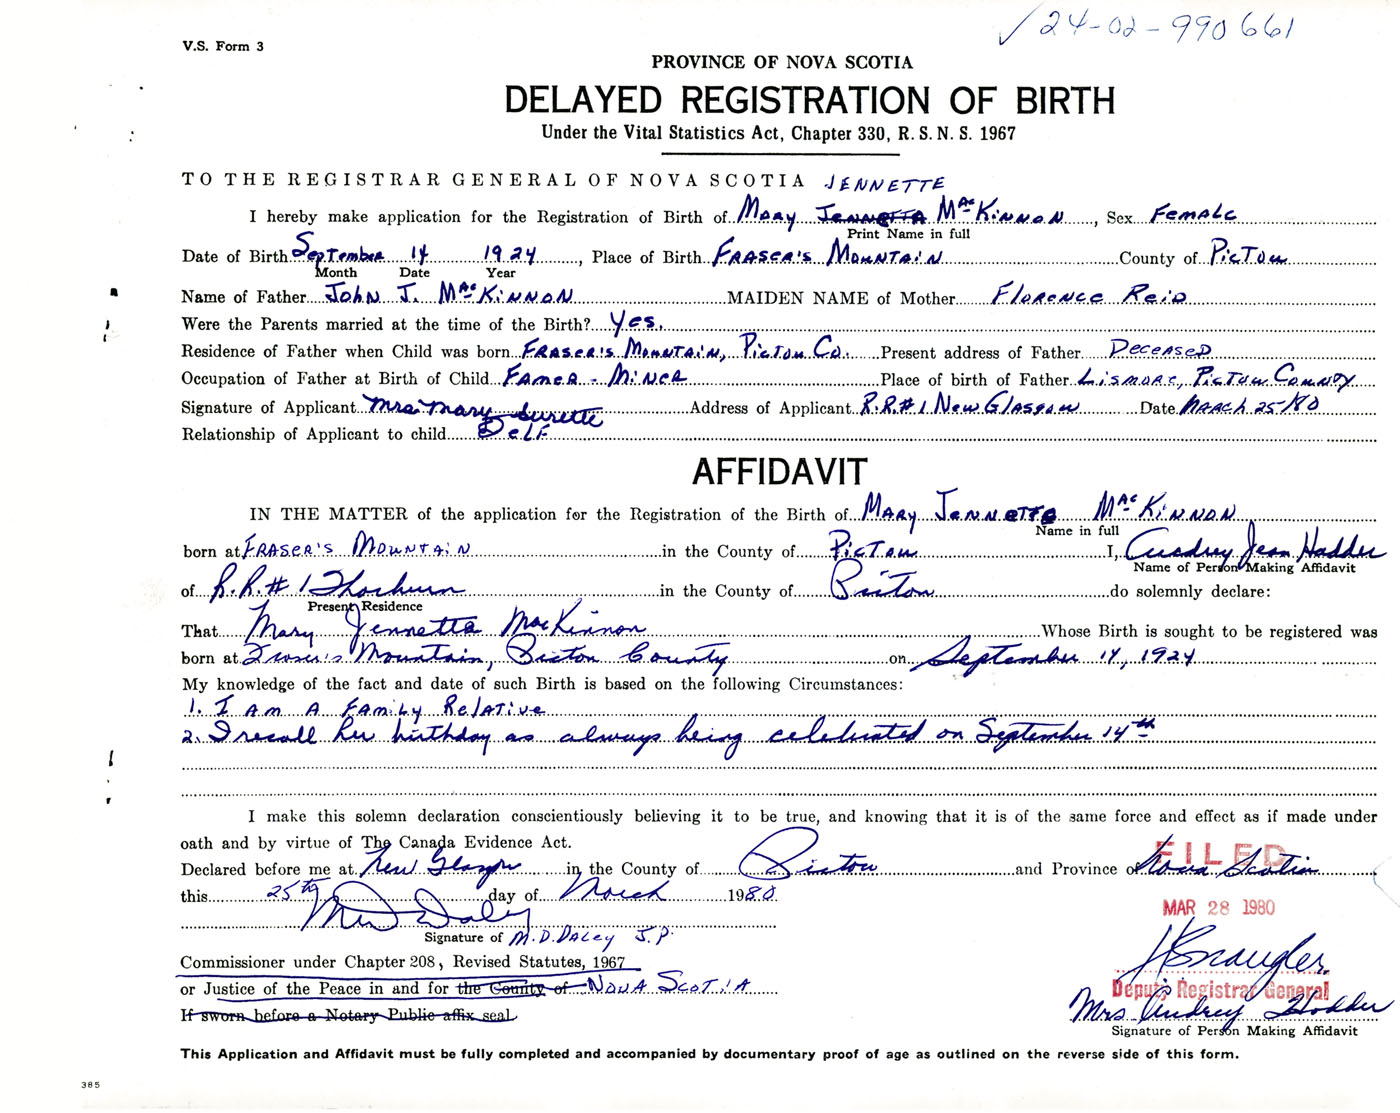 ✓24-02-990661
V.S. Form 3
PROVINCE OF NOVA SCOTIA
DELAYED REGISTRATION OF BIRTH
Under the Vital Statistics Act, Chapter 330, R. S. N. S. 1967
TO THE REGISTRAR GENERAL OF NOVA SCOTIA JENNETTE
I hereby make application for the Registration of Birth of Mary Jennetta MacKinnon, Sex Female
Print Name in full
Date of Birth September 14 1924, Place of Birth Fraser's Mountain County of Pictou
Month Date Year
Name of Father John J. MacKinnon MAIDEN NAME of Mother Florence Reid
Were the Parents married at the time of the Birth? Yes.
Residence of Father when Child was born Fraser's Mountain, Pictou Co. Present address of Father Deceased
Occupation of Father at Birth of Child Famer - Miner Place of birth of Father Lismore, Pictou County
Signature of Applicant Mrs. Mary Surette Address of Applicant R.R.#1 New Glasgow Date March 25/80
Relationship of Applicant to child Self
AFFIDAVIT
IN THE MATTER of the application for the Registration of the Birth of Mary Jennette MacKinnon
Name in full
born at Fraser's Mountain in the County of Pictou I, Audrey Jean Hodder
Name of Person Making Affidavit
of R.R.#1 Thorburn in the County of Pictou do solemnly declare:
Present Residence
That Mary Jennetta MacKinnon Whose Birth is sought to be registered was
born at Fraser's Mountain, Pictou County on September 14, 1924
My knowledge of the fact and date of such Birth is based on the following Circumstances:
1. I am a Family Relative
2. I recall her birthday as always being celebrated on September 14th
I make this solemn declaration conscientiously believing it to be true, and knowing that it is of the same force and effect as if made under
oath and by virtue of The Canada Evidence Act.
Declared before me at New Glasgow in the County of Pictou and Province of Nova Scotia
FILED
this 25th day of March 1980
MAR 28 1980
Signature of M.D. Daley J.P.
Commissioner under Chapter 208, Revised Statutes, 1967
or Justice of the Peace in and for the County of Nova Scotia
Deputy Registrar General
If sworn before a Notary Public affix seal
Mrs Audrey Hodder
Signature of Person Making Affidavit
This Application and Affidavit must be fully completed and accompanied by documentary proof of age as outlined on the reverse side of this form.
385